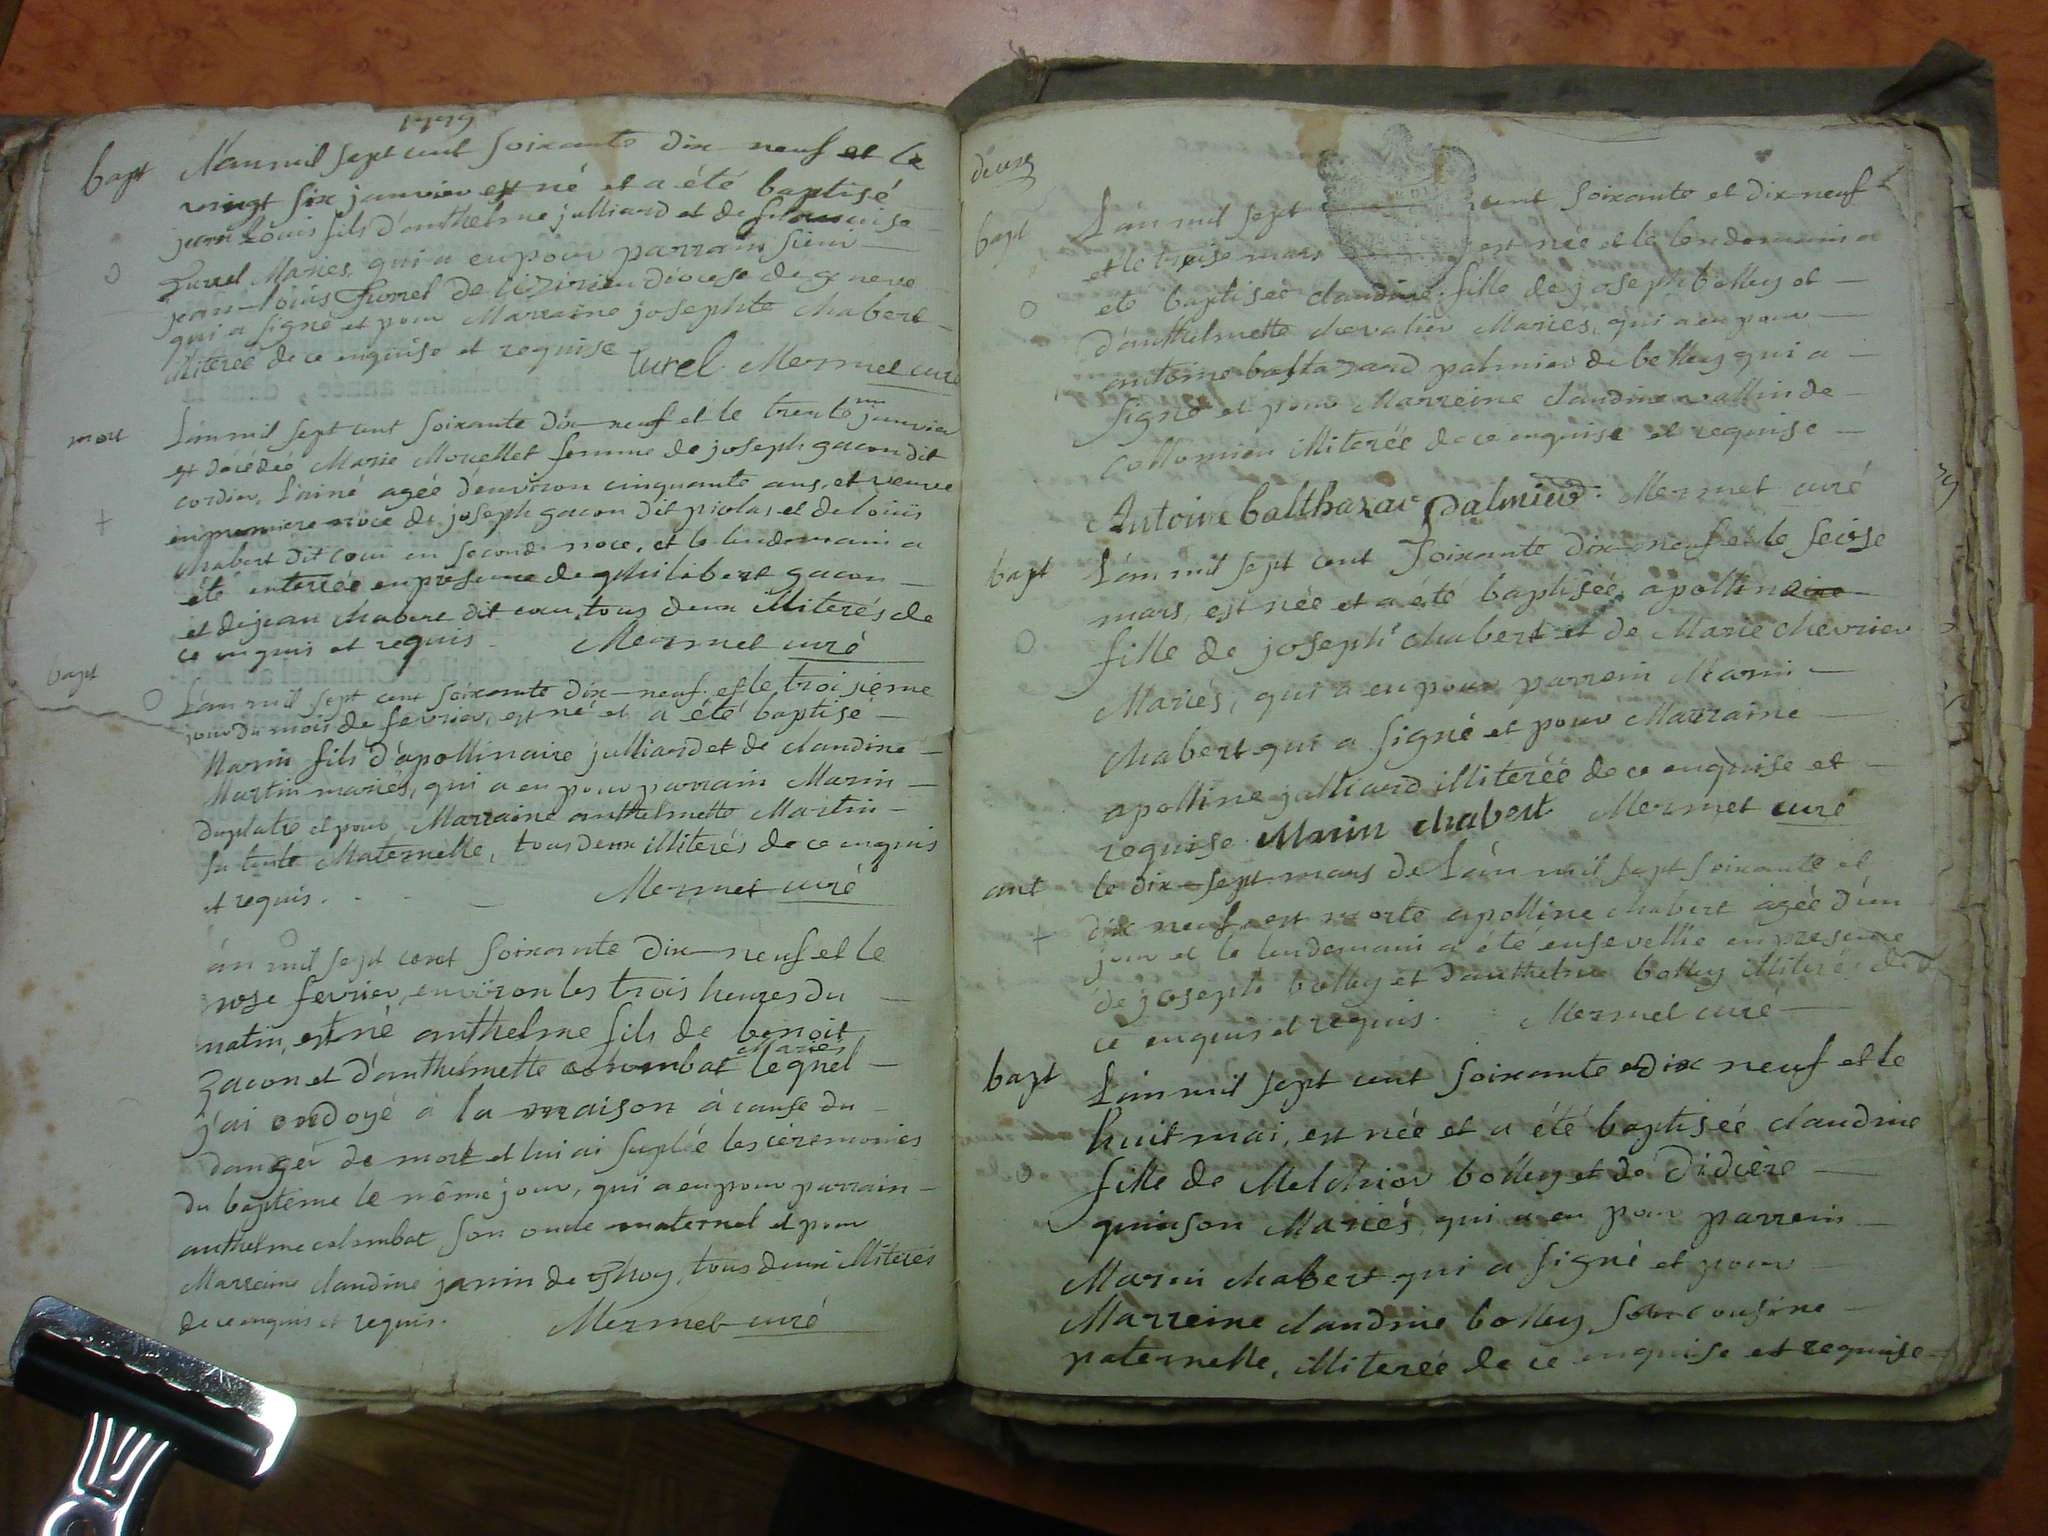 1779
bapt L'an mil sept cent soixante dix neuf et le
vingt six janvier est né et a été baptisé
jean Loüis fils d'anthelme julliard et de francoise
Turrel Mariés, qui a eu pour parrain sieur
jean-loüis Turrel de diocese de geneve
qui a signé et pour Marraine josephte chabert
illiterée de ce enquise et requise turel Mermet curé
mort L'an mil sept cent soixante dix neuf et le trente un janvier
est décédée Marie Mouellet femme de joseph gacon dit
cordier, L'ainé agée d'environ cinquante ans, et veuve
en premiere noce de joseph gacon dit piolas et de loüis
chabert dit cour en seconde noce, et le lendemain a
été enterée en presence de philibert gacon
et de jean chabert dit cour, tous deux illiterés de
ce enquis et requis Mermet curé
bapt L'an mil sept cent soixante dix-neuf et le troisieme
jour du mois de fevrier, est né et a été baptisé
Marin fils d'apollinaire julliard et de claudine
Martin mariés, qui a eu pour parrain Marin
duplatre et pour Marraine anthelmette Martin
sa tante Maternelle, tous deux illiterés de ce enquis
et requis. Mermet curé
án mil sept cent soixante dix-neuf et le
onse fevrier, environ les trois heures du
matin, est né anthelme fils de benoit
gacon et d'anthelmette colombat Mariés lequel
j'ai ondoyé à la maison à cause du
danger de mort et lui ai suplée les céremonies
du baptême le même jour, qui a eu pour parrain
anthelme colombat son oncle maternel et pour
Marraine claudine janin de tous deux illiterés
de ce enquis et requis. Mermet curé
deuzg
bapt L'an mil sept cent soixante et dix neuf
et le treise mars est née et le lendemain a
eté baptisée claudine fille de joseph bolley et
d'anthelmette chevalier Mariés, qui a eu pour
antoine baltazard palmier de belley qui a
signé et pour Marreine claudine vallin de
collomieu illiterée de ce enquise et requise
Antoine balthazar palmier Mermet curé
bapt L'an mil sept cent soixante dix-neuf et le seise
mars, est née et a été baptisée apollinaire
fille de joseph chabert et de Marie chevrier
Mariés, qui a eu pour parrein Marin
chabert qui a signé et pour Marraine
apolline julliard illiterée de ce enquise et
requise. Marin chabert Mermet curé
ent le dix-sept mars de L'an mil sept soixante et
dix neuf est morte apolline chabert agée d'un
jour et le lendemain a été ensevellie en presence
de joseph bolley et d'anthelme bolley illiterés de
ce enquis et requis. Mermet curé
bapt L'an mil sept cent soixante et dix neuf et le
huit mai, est née et a été baptisée claudine
fille de Melchior bolley et de Didiere
quinson Mariés, qui a eu pour parrein
Marin chabert qui a signé et pour
Marreine claudine bolley, sa cousine
paternelle, illiterée de ce enquise et requise